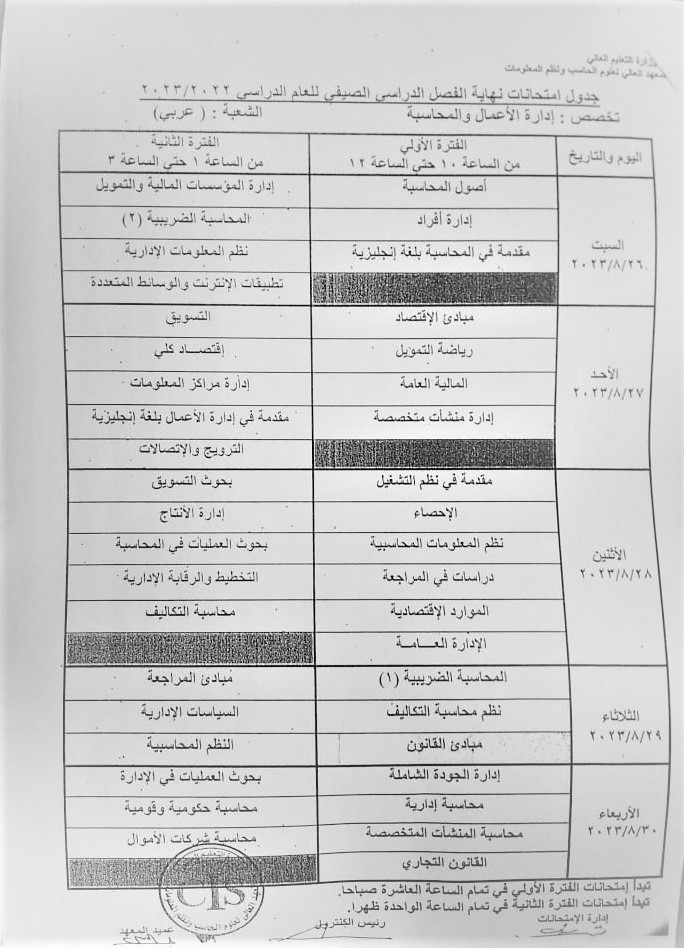 وزارة التعليم العالي
معهد العالي لعلوم الحاسب ونظم المعلومات
جدول امتحانات نهاية الفصل الدراسي الصيفي للعام الدراسي ٢٠٢٣/٢٠٢٢
تخصص : إدارة الأعمال والمحاسبة الشعبة : ( عربي)
اليوم والتاريخ
الفترة الأولي
من الساعة ١٠ حتي الساعة ١٢
الفترة الثانية
من الساعة ١ حتي الساعة ٣
السبت
٢٠٢٣/٨/٢٦
أصول المحاسبة
إدارة المؤسسات المالية والتمويل
إدارة أفراد
المحاسبة الضريبية (٢)
مقدمة في المحاسبة بلغة إنجليزية
نظم المعلومات الإدارية
تطبيقات الإنترنت والوسائط المتعددة
الأحد
٢٠٢٣/٨/٢٧
مبادئ الإقتصاد
التسويق
رياضة التمويل
إقتصــاد كلي
المالية العامة
إدارة مراكز المعلومات
إدارة منشأت متخصصة
مقدمة في إدارة الأعمال بلغة إنجليزية
الترويج والإتصالات
الأثنين
٢٠٢٣/٨/٢٨
مقدمة في نظم التشغيل
بحوث التسويق
الإحصاء
إدارة الأنتاج
نظم المعلومات المحاسبية
بحوث العمليات في المحاسبة
دراسات في المراجعة
التخطيط والرقابة الإدارية
الموارد الإقتصادية
محاسبة التكاليف
الإدارة العـــامـــة
الثلاثاء
٢٠٢٣/٨/٢٩
المحاسبة الضريبية (١)
مبادئ المراجعة
نظم محاسبة التكاليف
السياسات الإدارية
مبادئ القانون
النظم المحاسبية
الأربعاء
٢٠٢٣/٨/٣٠
إدارة الجودة الشاملة
بحوث العمليات في الإدارة
محاسبة إدارية
محاسبة حكومية وقومية
محاسبة المنشأت المتخصصة
محاسبة شركات الأموال
القانون التجاري
تبدأ إمتحانات الفترة الأولي في تمام الساعة العاشرة صباحا.
تبدأ إمتحانات الفترة الثانية في تمام الساعة الواحدة ظهرا.
إدارة الإمتحانات
رئيس الكنترول
عميد المعهد
CIS